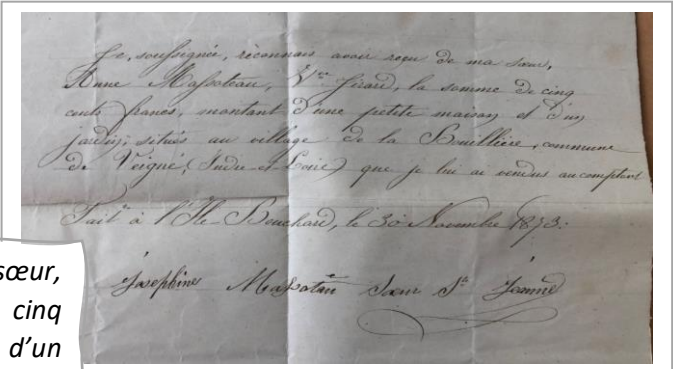 Je, soussignée, reconnais avoir reçu de ma sœur,
Anne Massoteau, Vve Girard, la somme de cinq
cents francs, montant d'une petite maison et d'un
jardin, situés au village de la Bouillière, commune
de Veigné, (Indre-et-Loire) que je lui ai vendus au comptant
Fait à l'Ile-Bouchard, le 30 Novembre 1873.
Joséphine Massoteau Sœur St Jeanne
sœur,
cinq
d'un